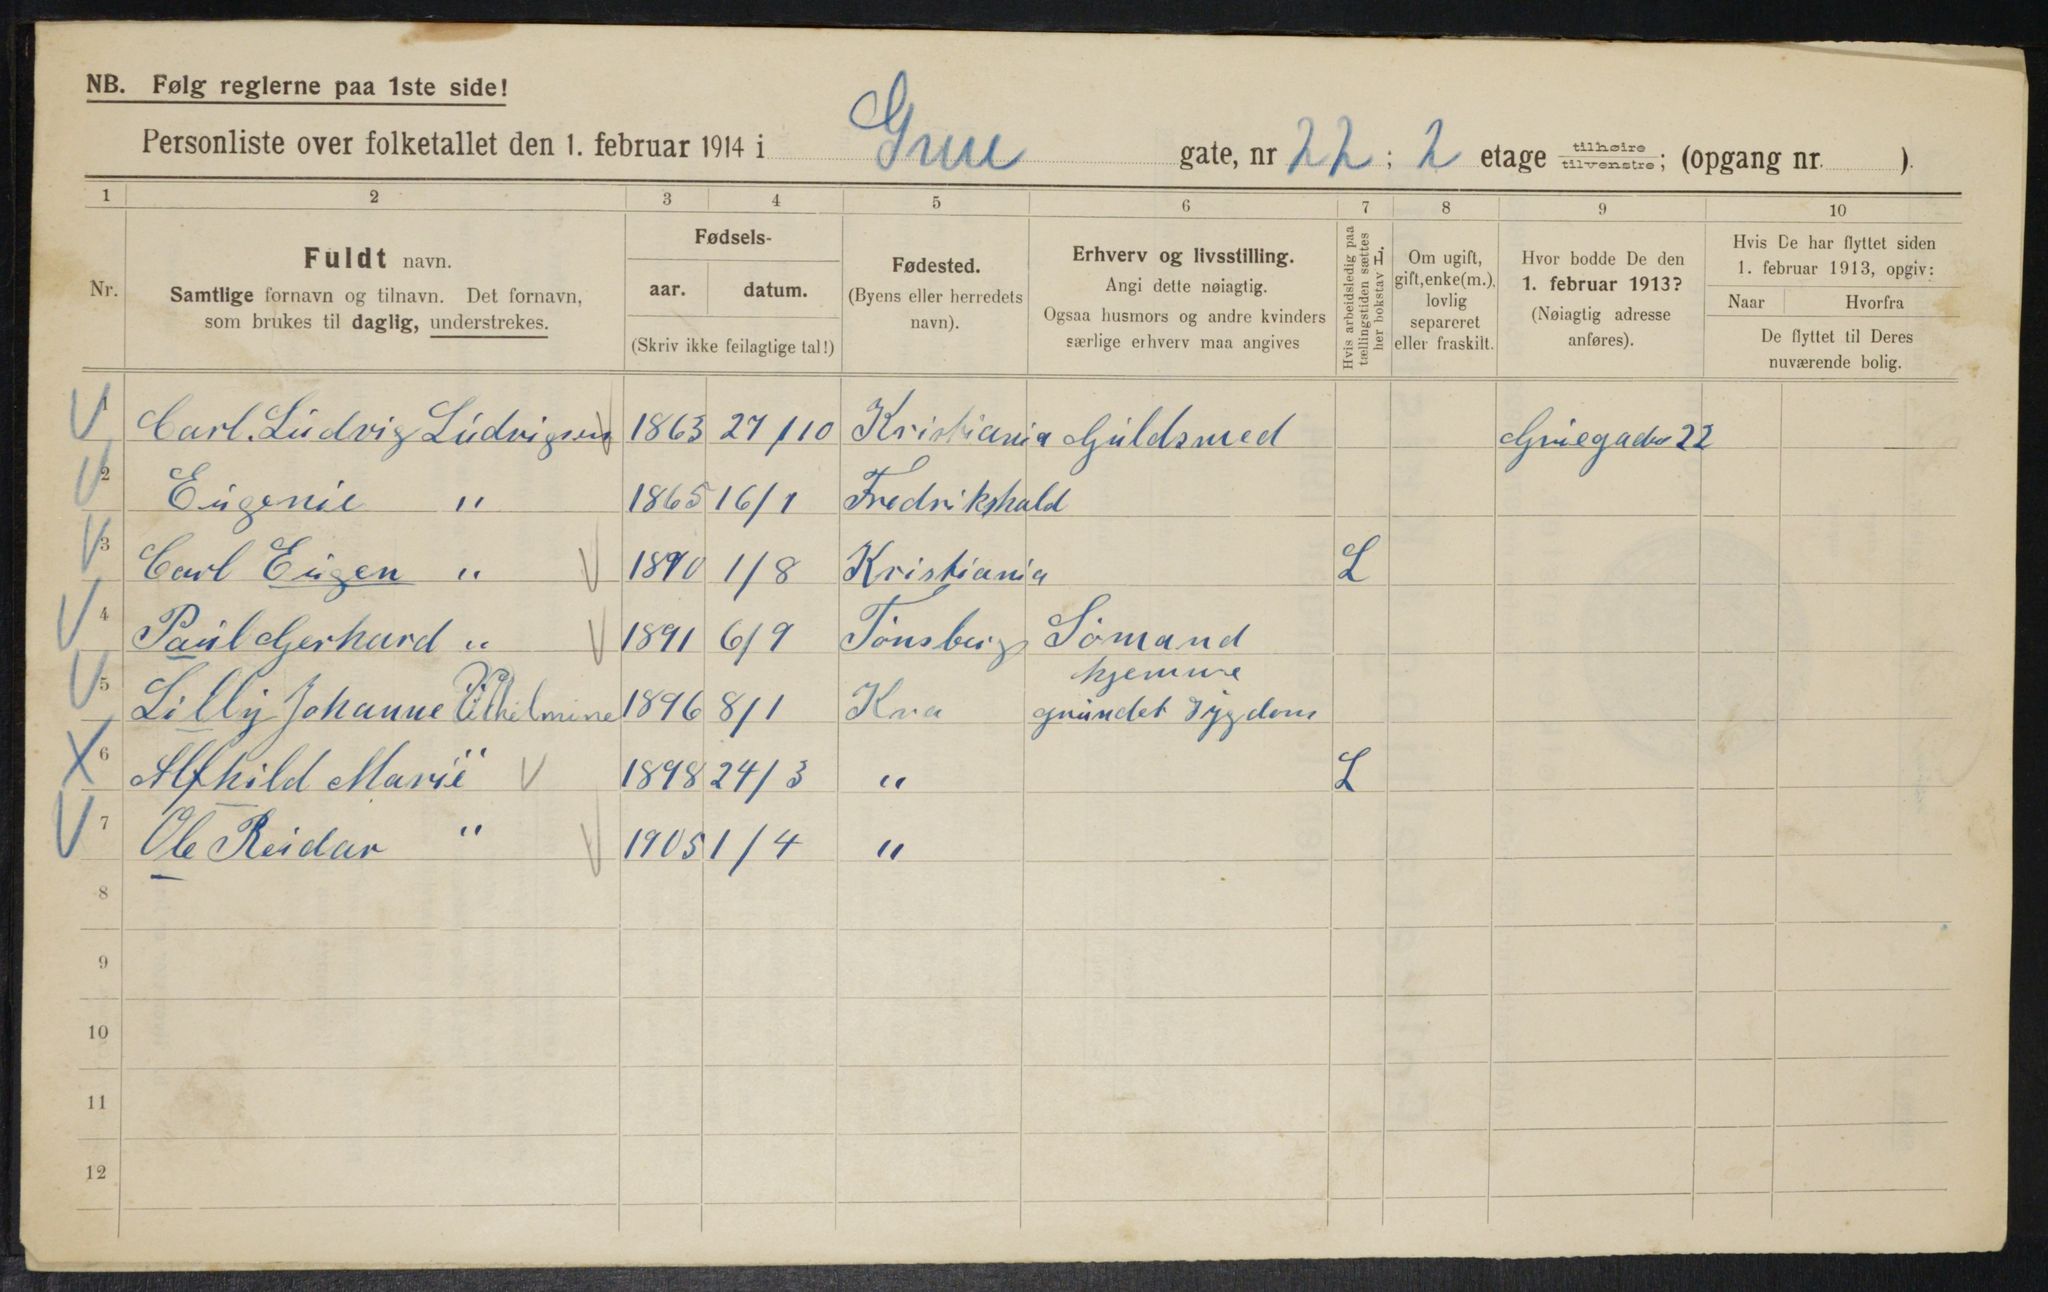 NB. Følg reglerne paa 1ste side!
Personliste over folketallet den 1. februar 1914 i Grue gate, nr 22; 2 etage tilhøire/tilvenstre; (opgang nr. ).
1 2 3 4 5 6 7 8 9 10
Nr.
Fuldt navn.
Samtlige fornavn og tilnavn. Det fornavn,
som brukes til daglig, understrekes.
Fødsels-
aar. datum.
(Skriv ikke feilagtige tal!)
Fødested.
(Byens eller herredets
navn).
Erhverv og livsstilling.
Angi dette nøiagtig.
Ogsaa husmors og andre kvinders
særlige erhverv maa angives
Hvis arbeidsledig paa
tællingstiden sættes
her bokstav L.
Om ugift,
gift, enke(m.),
lovlig
separeret
eller fraskilt.
Hvor bodde De den
1. februar 1913?
(Nøiagtig adresse
anføres).
Hvis De har flyttet siden
1. februar 1913, opgiv:
Naar Hvorfra
De flyttet til Deres
nuværende bolig.
1 Carl. Ludvig Ludvigsen 1863 27/10 Kristiania Guldsmed Gruegaden 22
2 Eugenie " 1865 16/1 Fredrikshald
3 Carl Eugen " 1890 1/8 Kristiania L
4 Paul Gerhard " 1891 6/9 Tønsberg Sømand
hjemme
5 Lilly Johanne Vilhelmine 1896 8/1 Kra grundet sygdom
6 Alfhild Marie " 1898 24/3 " L
7 Ole Reidar " 1905 1/4 "
8
9
10
11
12